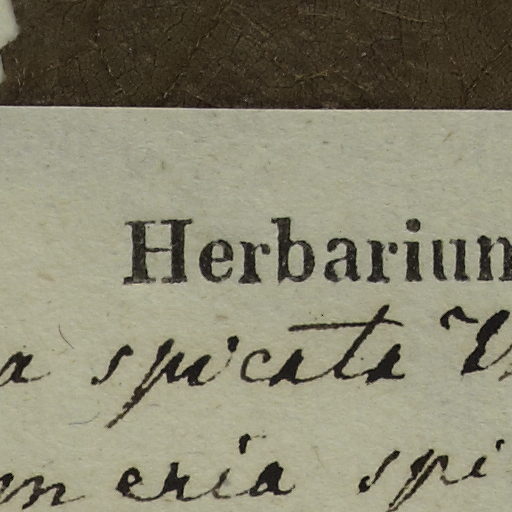 Herbarium
a spicata V
meria spi